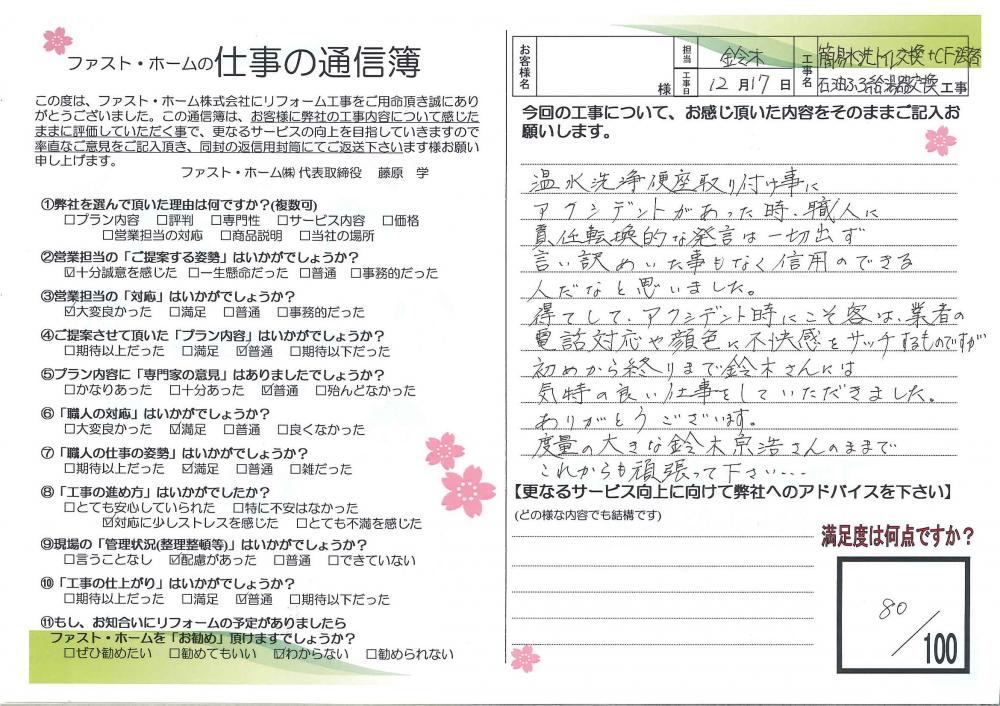 ファスト・ホームの仕事の通信簿
この度は、ファスト・ホーム株式会社にリフォーム工事をご用命頂き誠にあり
がとうございました。この通信簿は、お客様に弊社の工事内容について感じた
ままに評価していただく事で、更なるサービスの向上を目指していきますので
率直なご意見をご記入頂き、同封の返信用封筒にてご返送下さいます様お願い
申し上げます。
ファスト・ホーム㈱ 代表取締役 藤原 学
①弊社を選んで頂いた理由は何ですか?(複数可)
□プラン内容 □評判 □専門性 □サービス内容 □価格
□営業担当の対応 □商品説明 □当社の場所
②営業担当の「ご提案する姿勢」はいかがでしょうか?
☑十分誠意を感じた □一生懸命だった □普通 □事務的だった
③営業担当の「対応」はいかがでしょうか?
☑大変良かった □満足 □普通 □事務的だった
④ご提案させて頂いた「プラン内容」はいかがでしょうか?
□期待以上だった □満足 ☑普通 □期待以下だった
⑤プラン内容に「専門家の意見」はありましたでしょうか?
□かなりあった □十分あった ☑普通 □殆んどなかった
⑥「職人の対応」はいかがでしょうか?
□大変良かった ☑満足 □普通 □良くなかった
⑦「職人の仕事の姿勢」はいかがでしょうか?
□期待以上だった ☑満足 □普通 □雑だった
⑧「工事の進め方」はいかがでしたか?
□とても安心していられた □特に不安はなかった
☑対応に少しストレスを感じた □とても不満を感じた
⑨現場の「管理状況(整理整頓等)」はいかがでしょうか?
□言うことなし ☑配慮があった □普通 □できていない
⑩「工事の仕上がり」はいかがでしょうか?
□期待以上だった □満足 ☑普通 □期待以下だった
⑪もし、お知合いにリフォームの予定がありましたら
ファスト・ホームを「お勧め」頂けますでしょうか?
□ぜひ勧めたい □勧めてもいい ☑わからない □勧められない
お客様名 様 担当 鈴木 工事名 簡易水洗トイレ交換+CF張替
工事日 12月17日 石油ふろ給湯器交換工事
今回の工事について、お感じ頂いた内容をそのままご記入お
願いします。
温水洗浄便座取り付け事に
アクシデントがあった時、職人に
責任転換的な発言は一切出ず
言い訳めいた事もなく信用のできる
人だなと思いました。
得てして、アクシデント時にこそ客は、業者の
電話対応や顔色に不快感をサッチするものですが
初めから終りまで鈴木さんには
気特の良い仕事をしていただきました。
ありがとうございます。
度量の大きな鈴木宗浩さんのままで
これからも頑張って下さい...
【更なるサービス向上に向けて弊社へのアドバイスを下さい】
(どの様な内容でも結構です)
満足度は何点ですか?
80/100